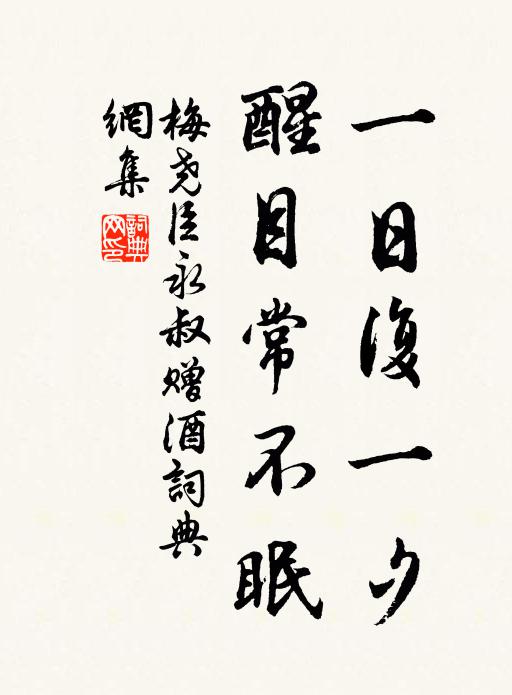 一日復一夕
醒目常不眠
梅堯臣永叔贈酒詞典
網集
詞典
网印